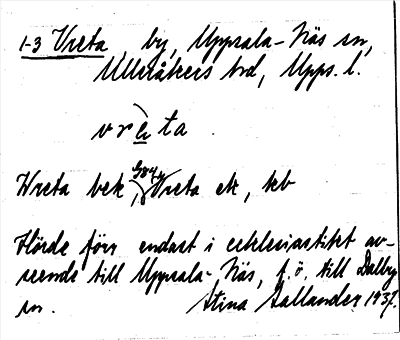 1-3 Vreta, by, Uppsala-Näs sn,
Ulleråkers hd, Upps. l.
vrèta.
Wreta bek, Gsk, Vreta ek, kb
Hörde förr endast i ecklesiastikt av-
seende till Uppsala-Näs, f. ö. till Dalby
sn. Stina Hallander 1937.